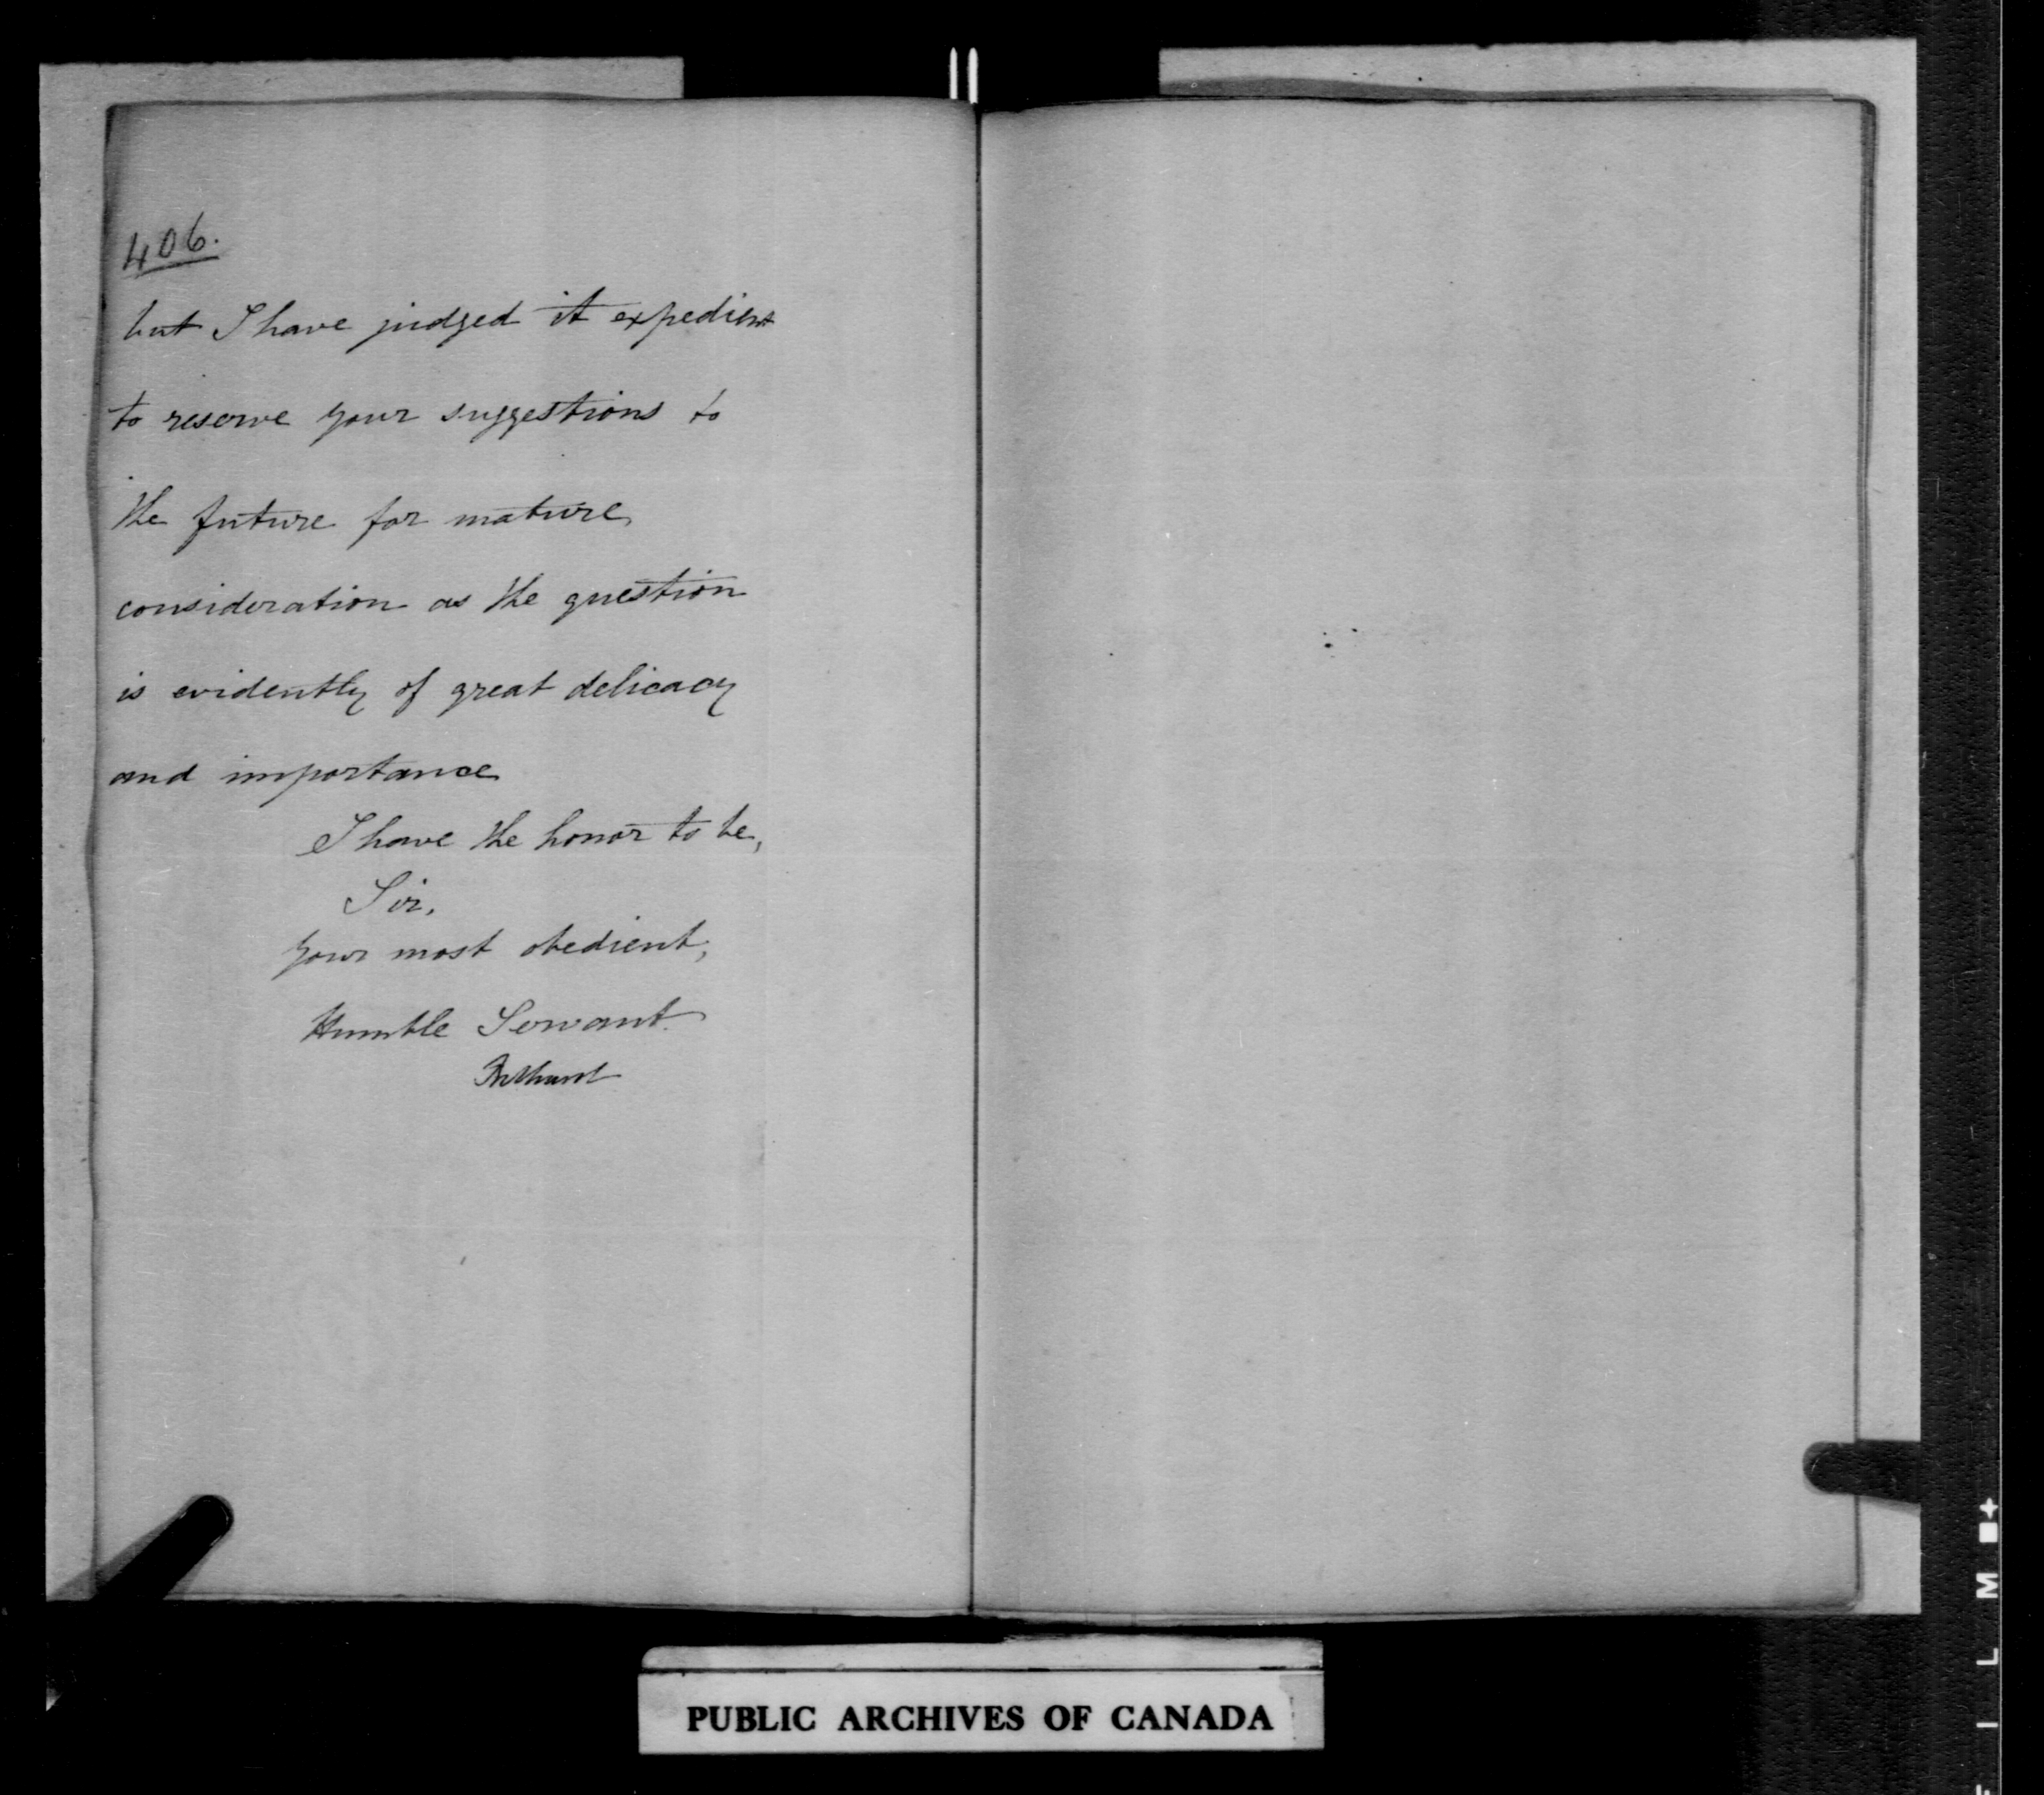 406.
but I have judged it expedient
to reserve your suggestions to
the future for mature
consideration as the question
is evidently of great delicacy
and importance
I have the honor to be,
Sir,
Your most obedient,
Humble Servant.
Bathurst
PUBLIC ARCHIVES OF CANADA
F I L M